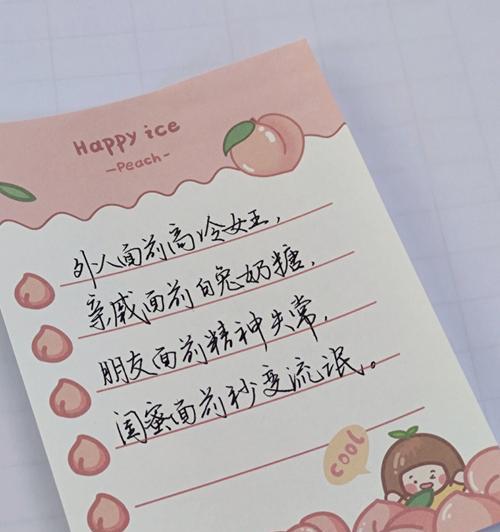 Happy ice
-Peach-
外人面前高冷女王，
亲戚面前白兔奶糖，
朋友面前精神失常，
闺蜜面前秒变流氓。
cool